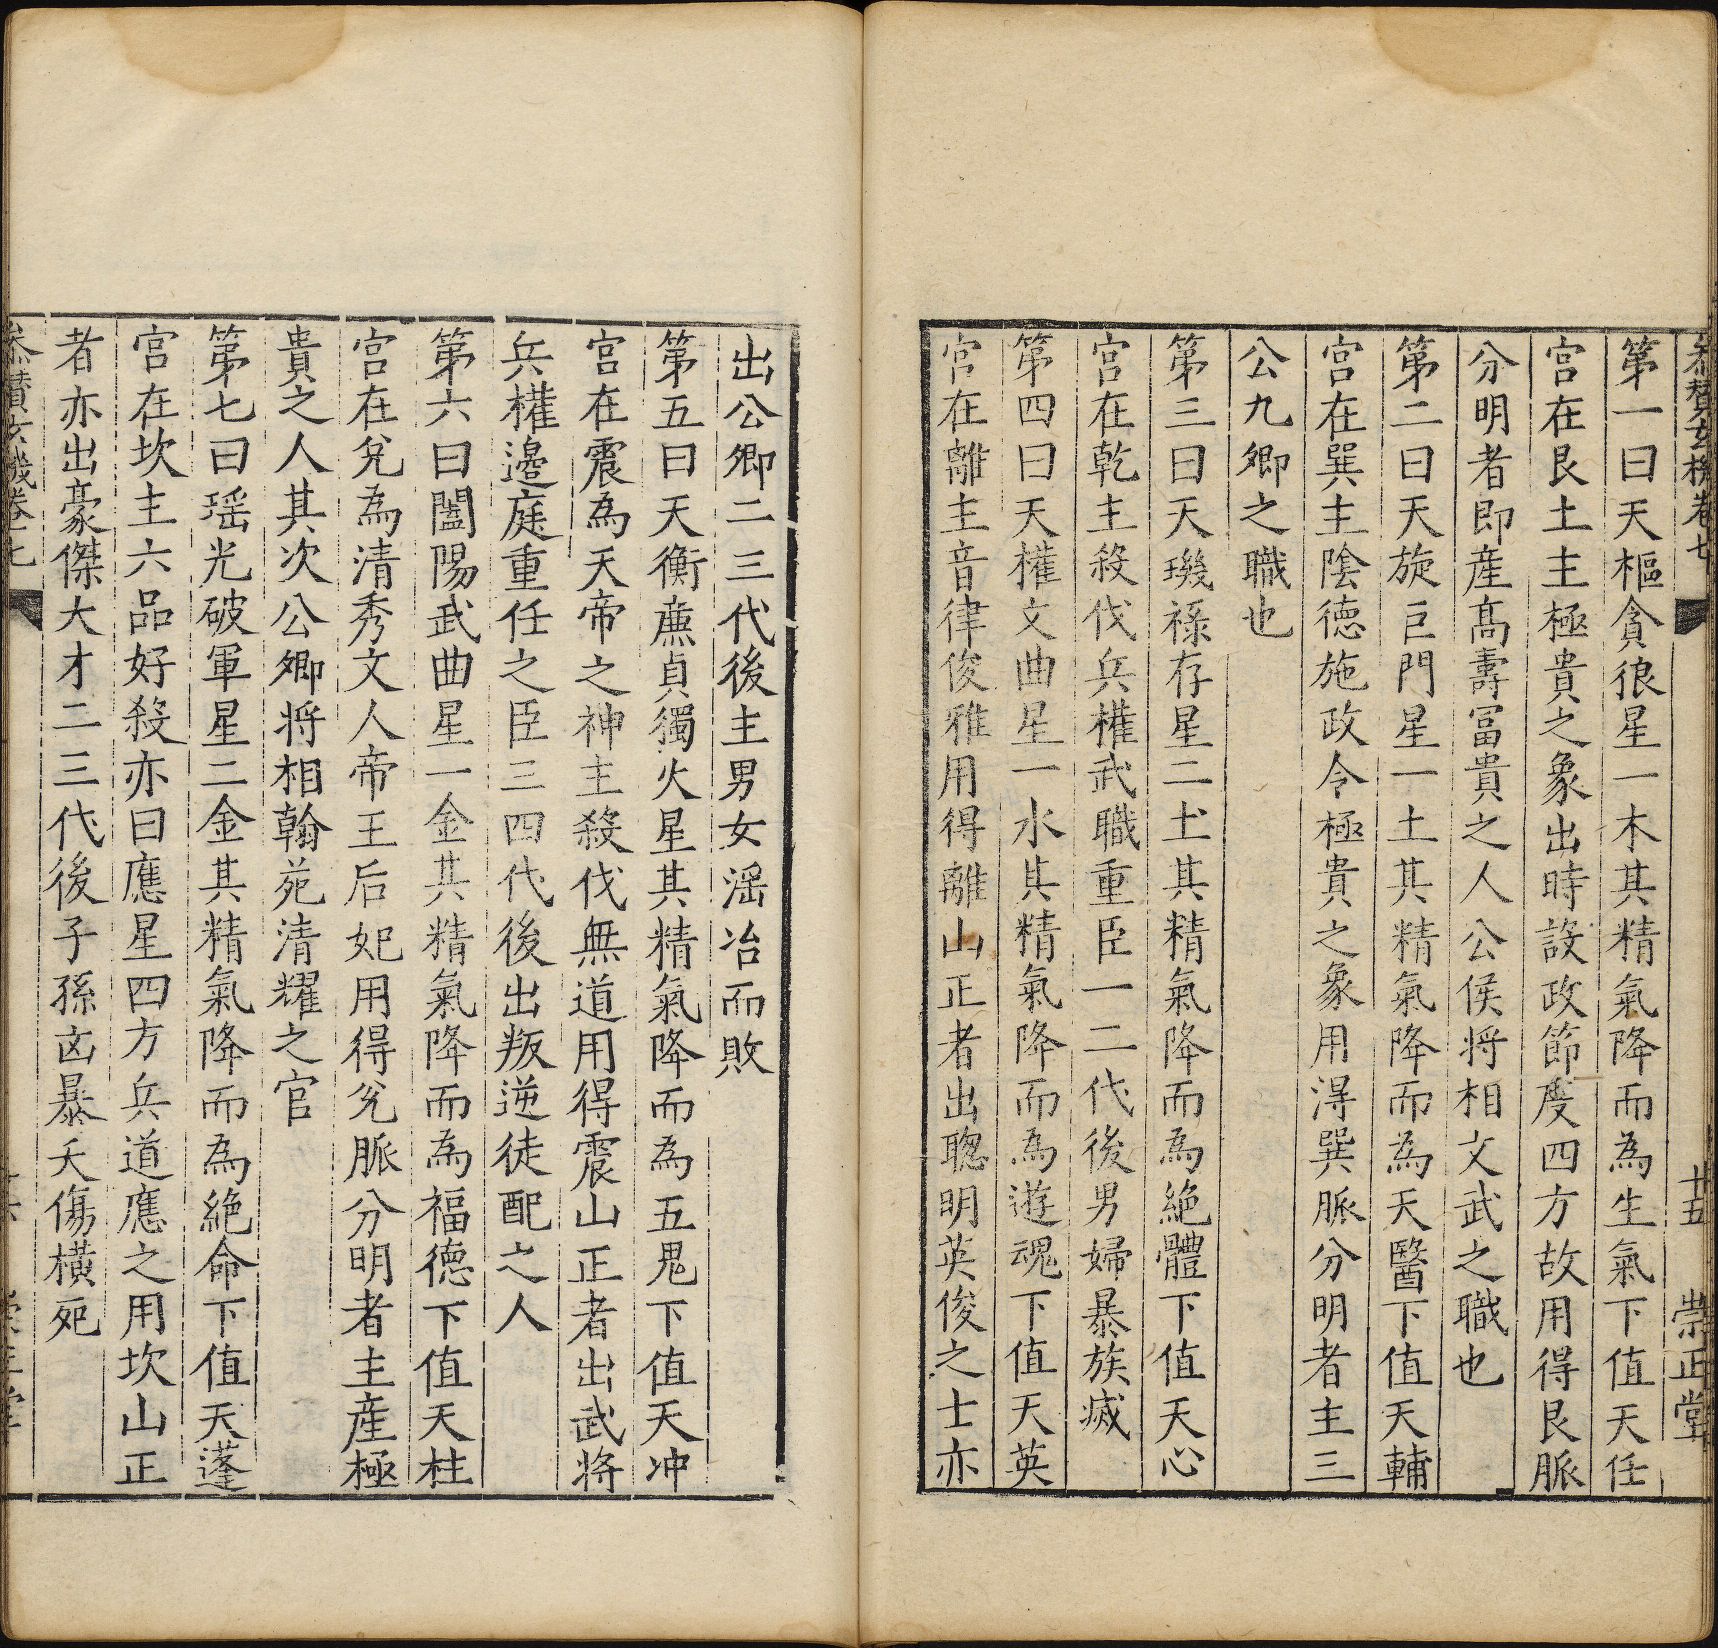 參贊玄機卷七 十五 崇正堂
第一曰天樞貪狼星一木其精氣降而為生氣下值天任
宮在艮土主極貴之象出時設政節度四方故用得艮脈
分明者即產髙壽冨貴之人公侯将相文武之職也
第二曰天旋巨門星一土其精氣降而為天醫下值天輔
宮在巽主陰德施政令極貴之象用淂巽脈分明者主三
公九卿之職也
第三曰天璣祿存星二土其精氣降而為絶體下值天心
宮在乾主殺伐兵權武職重臣一二代後男婦暴族滅
第四曰天權文曲星一水其精氣降而為遊魂下值天英
宮在離主音律俊雅用得離山正者出聰明英俊之士亦
出公卿二三代後主男女滛冶而敗
第五曰天衡廉貞獨火星其精氣降而為五鬼下值天冲
宮在震為天帝之神主殺伐無道用得震山正者出武将
兵權邉庭重任之臣三四代後出叛逆徒配之人
第六曰闓陽武曲星一金其精氣降而為福德下值天柱
宮在兌為清秀文人帝王后妃用得兌脈分明者主產極
貴之人其次公卿将相翰苑清耀之官
第七曰瑶光破軍星二金其精氣降而為絶命下值天蓬
宮在坎主六品好殺亦曰應星四方兵道應之用坎山正
者亦出豪傑大才二三代後子孫凶暴夭傷橫死
參贊玄機卷七